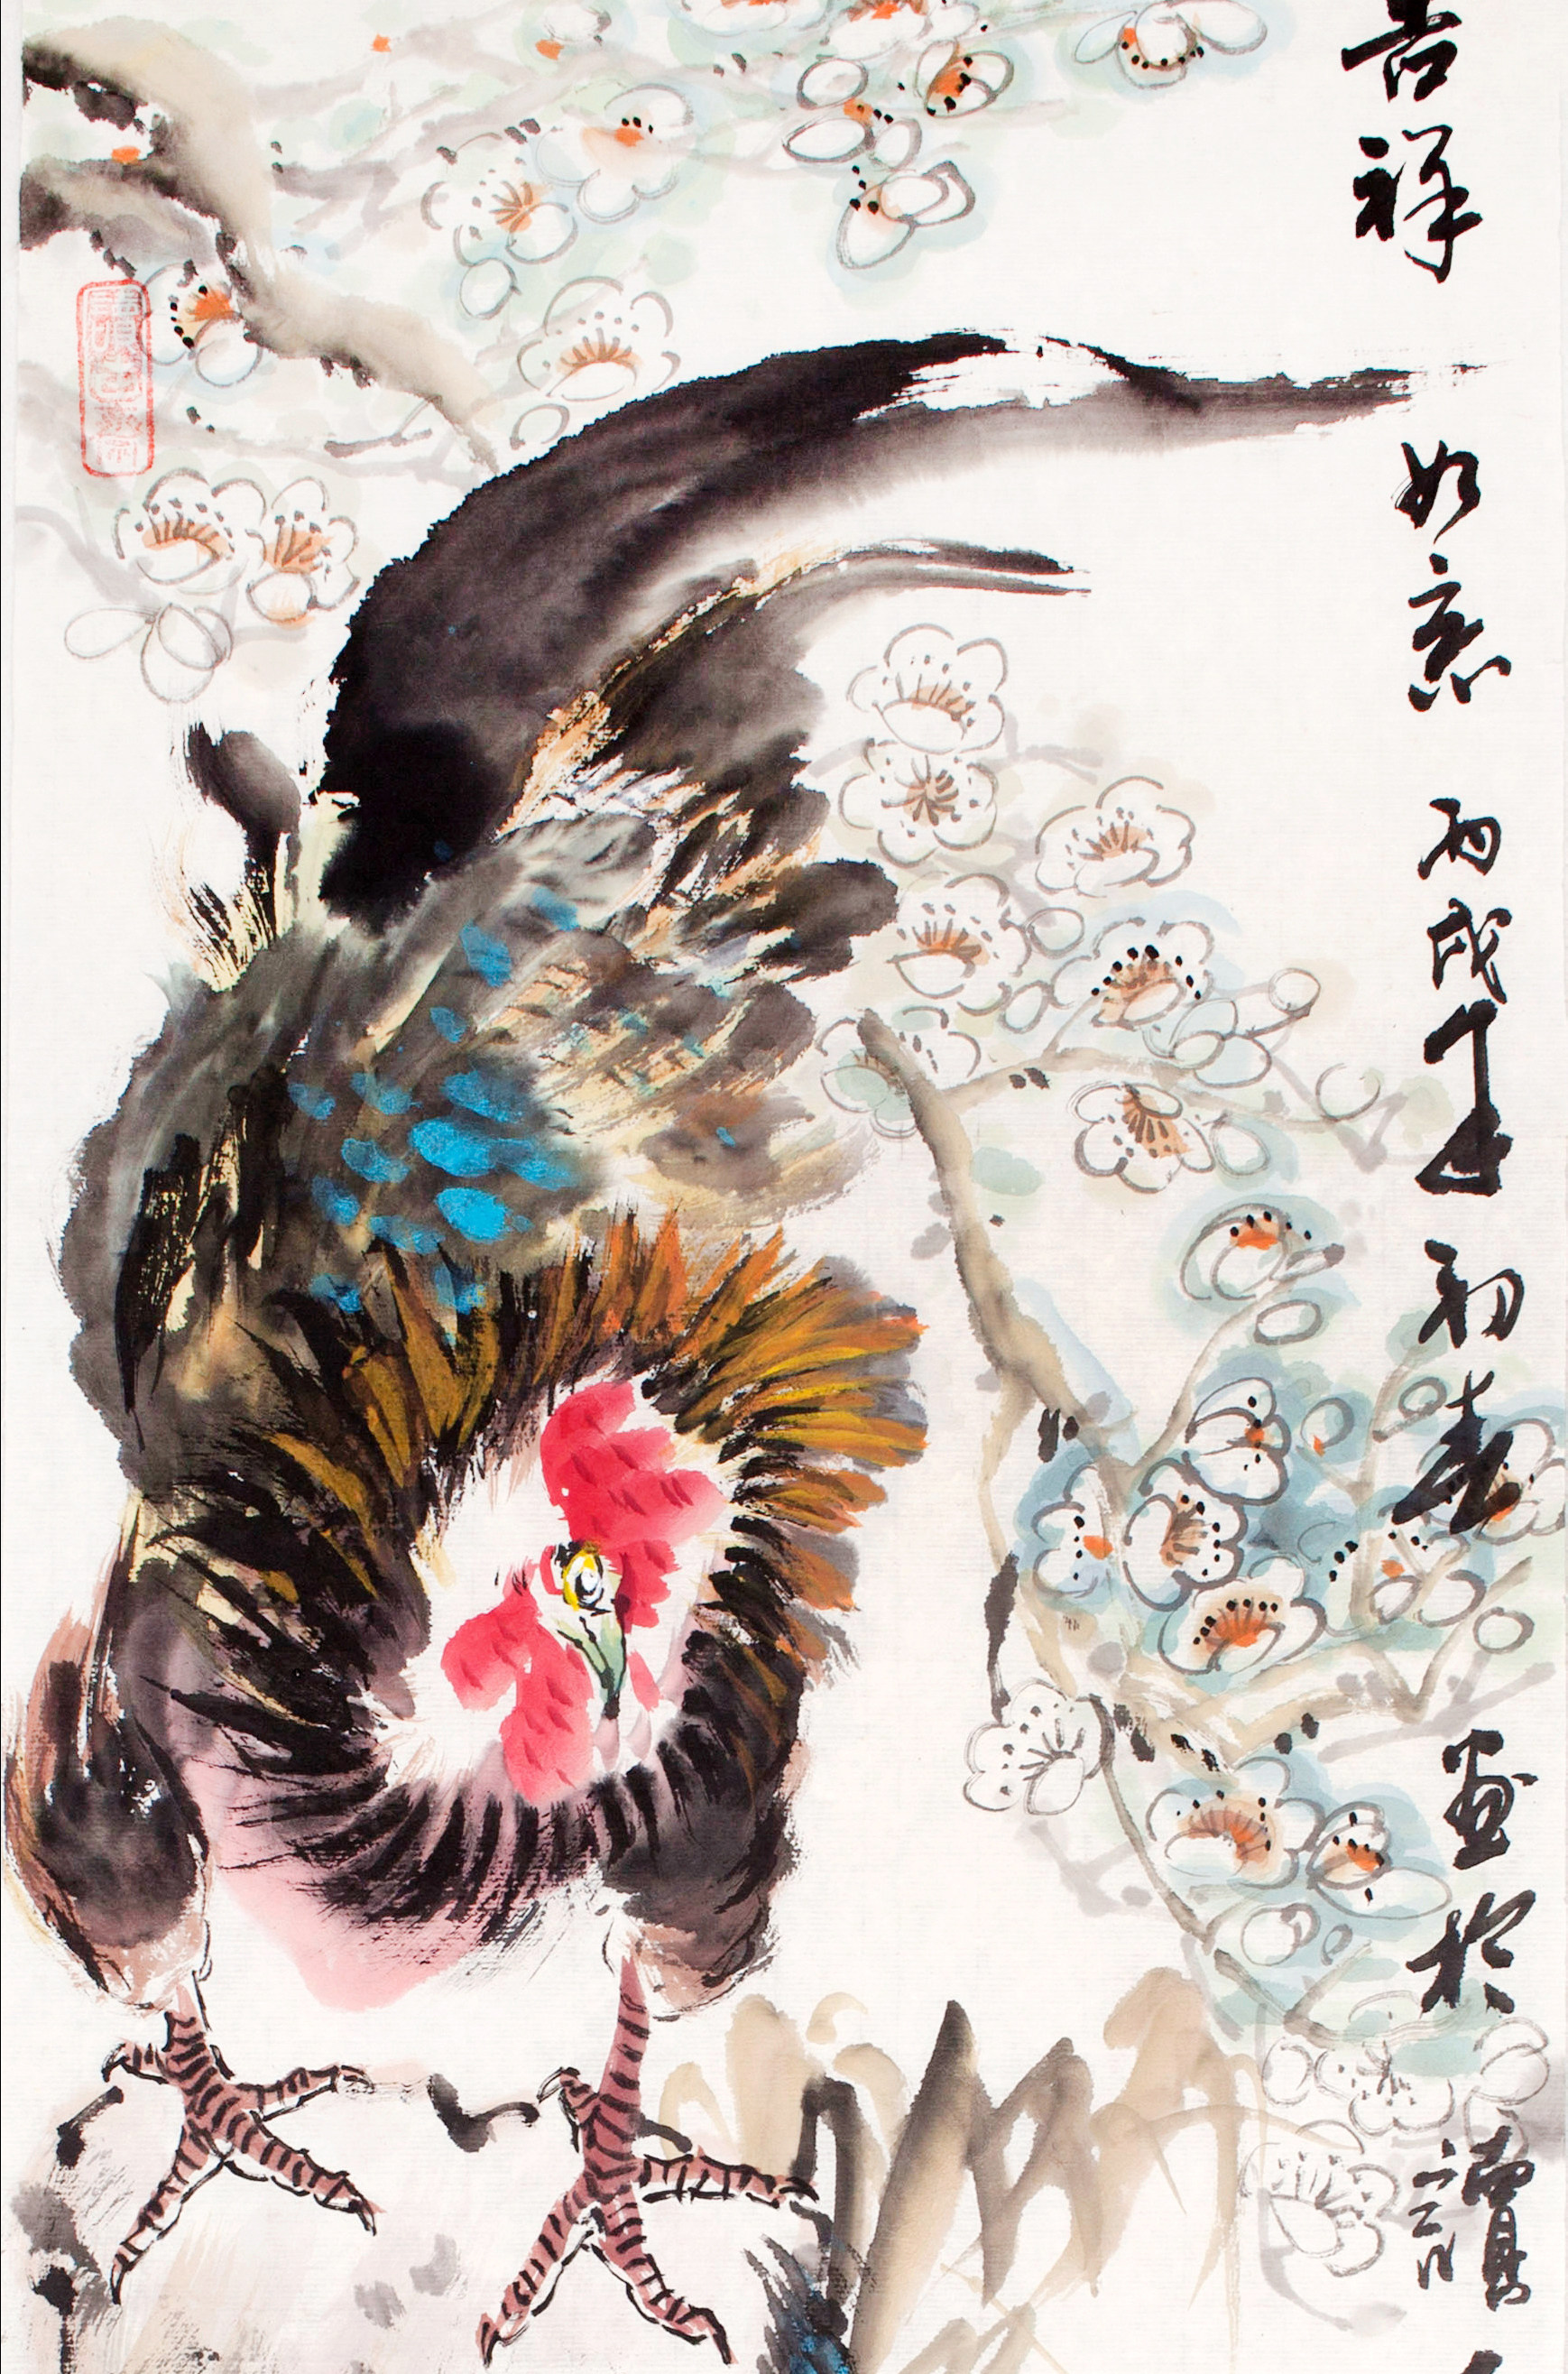 吉祥如意 丙戌年初春 画於讀